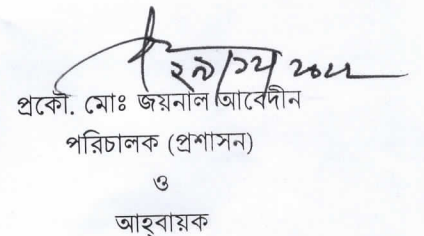 ২৯/১২/২০২২
প্রকৌ. মোঃ জয়নাল আবেদীন
পরিচালক (প্রশাসন)
ও
আহ্বায়ক